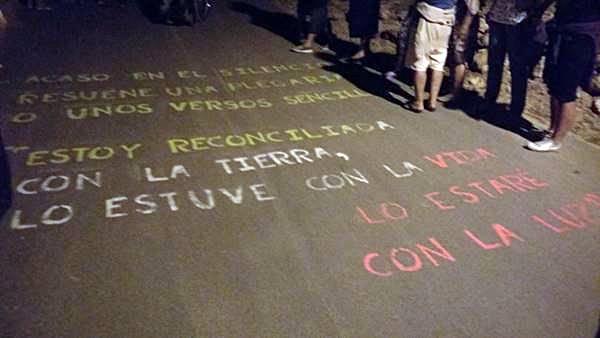 ACASO EN EL SILENCI
RESUENE UNA PLEGARI
O UNOS VERSOS SENCILL
"ESTOY RECONCILIADA
CON LA TIERRA,
LO ESTUVE CON LA VIDA
LO ESTARÉ
CON LA LUZ"